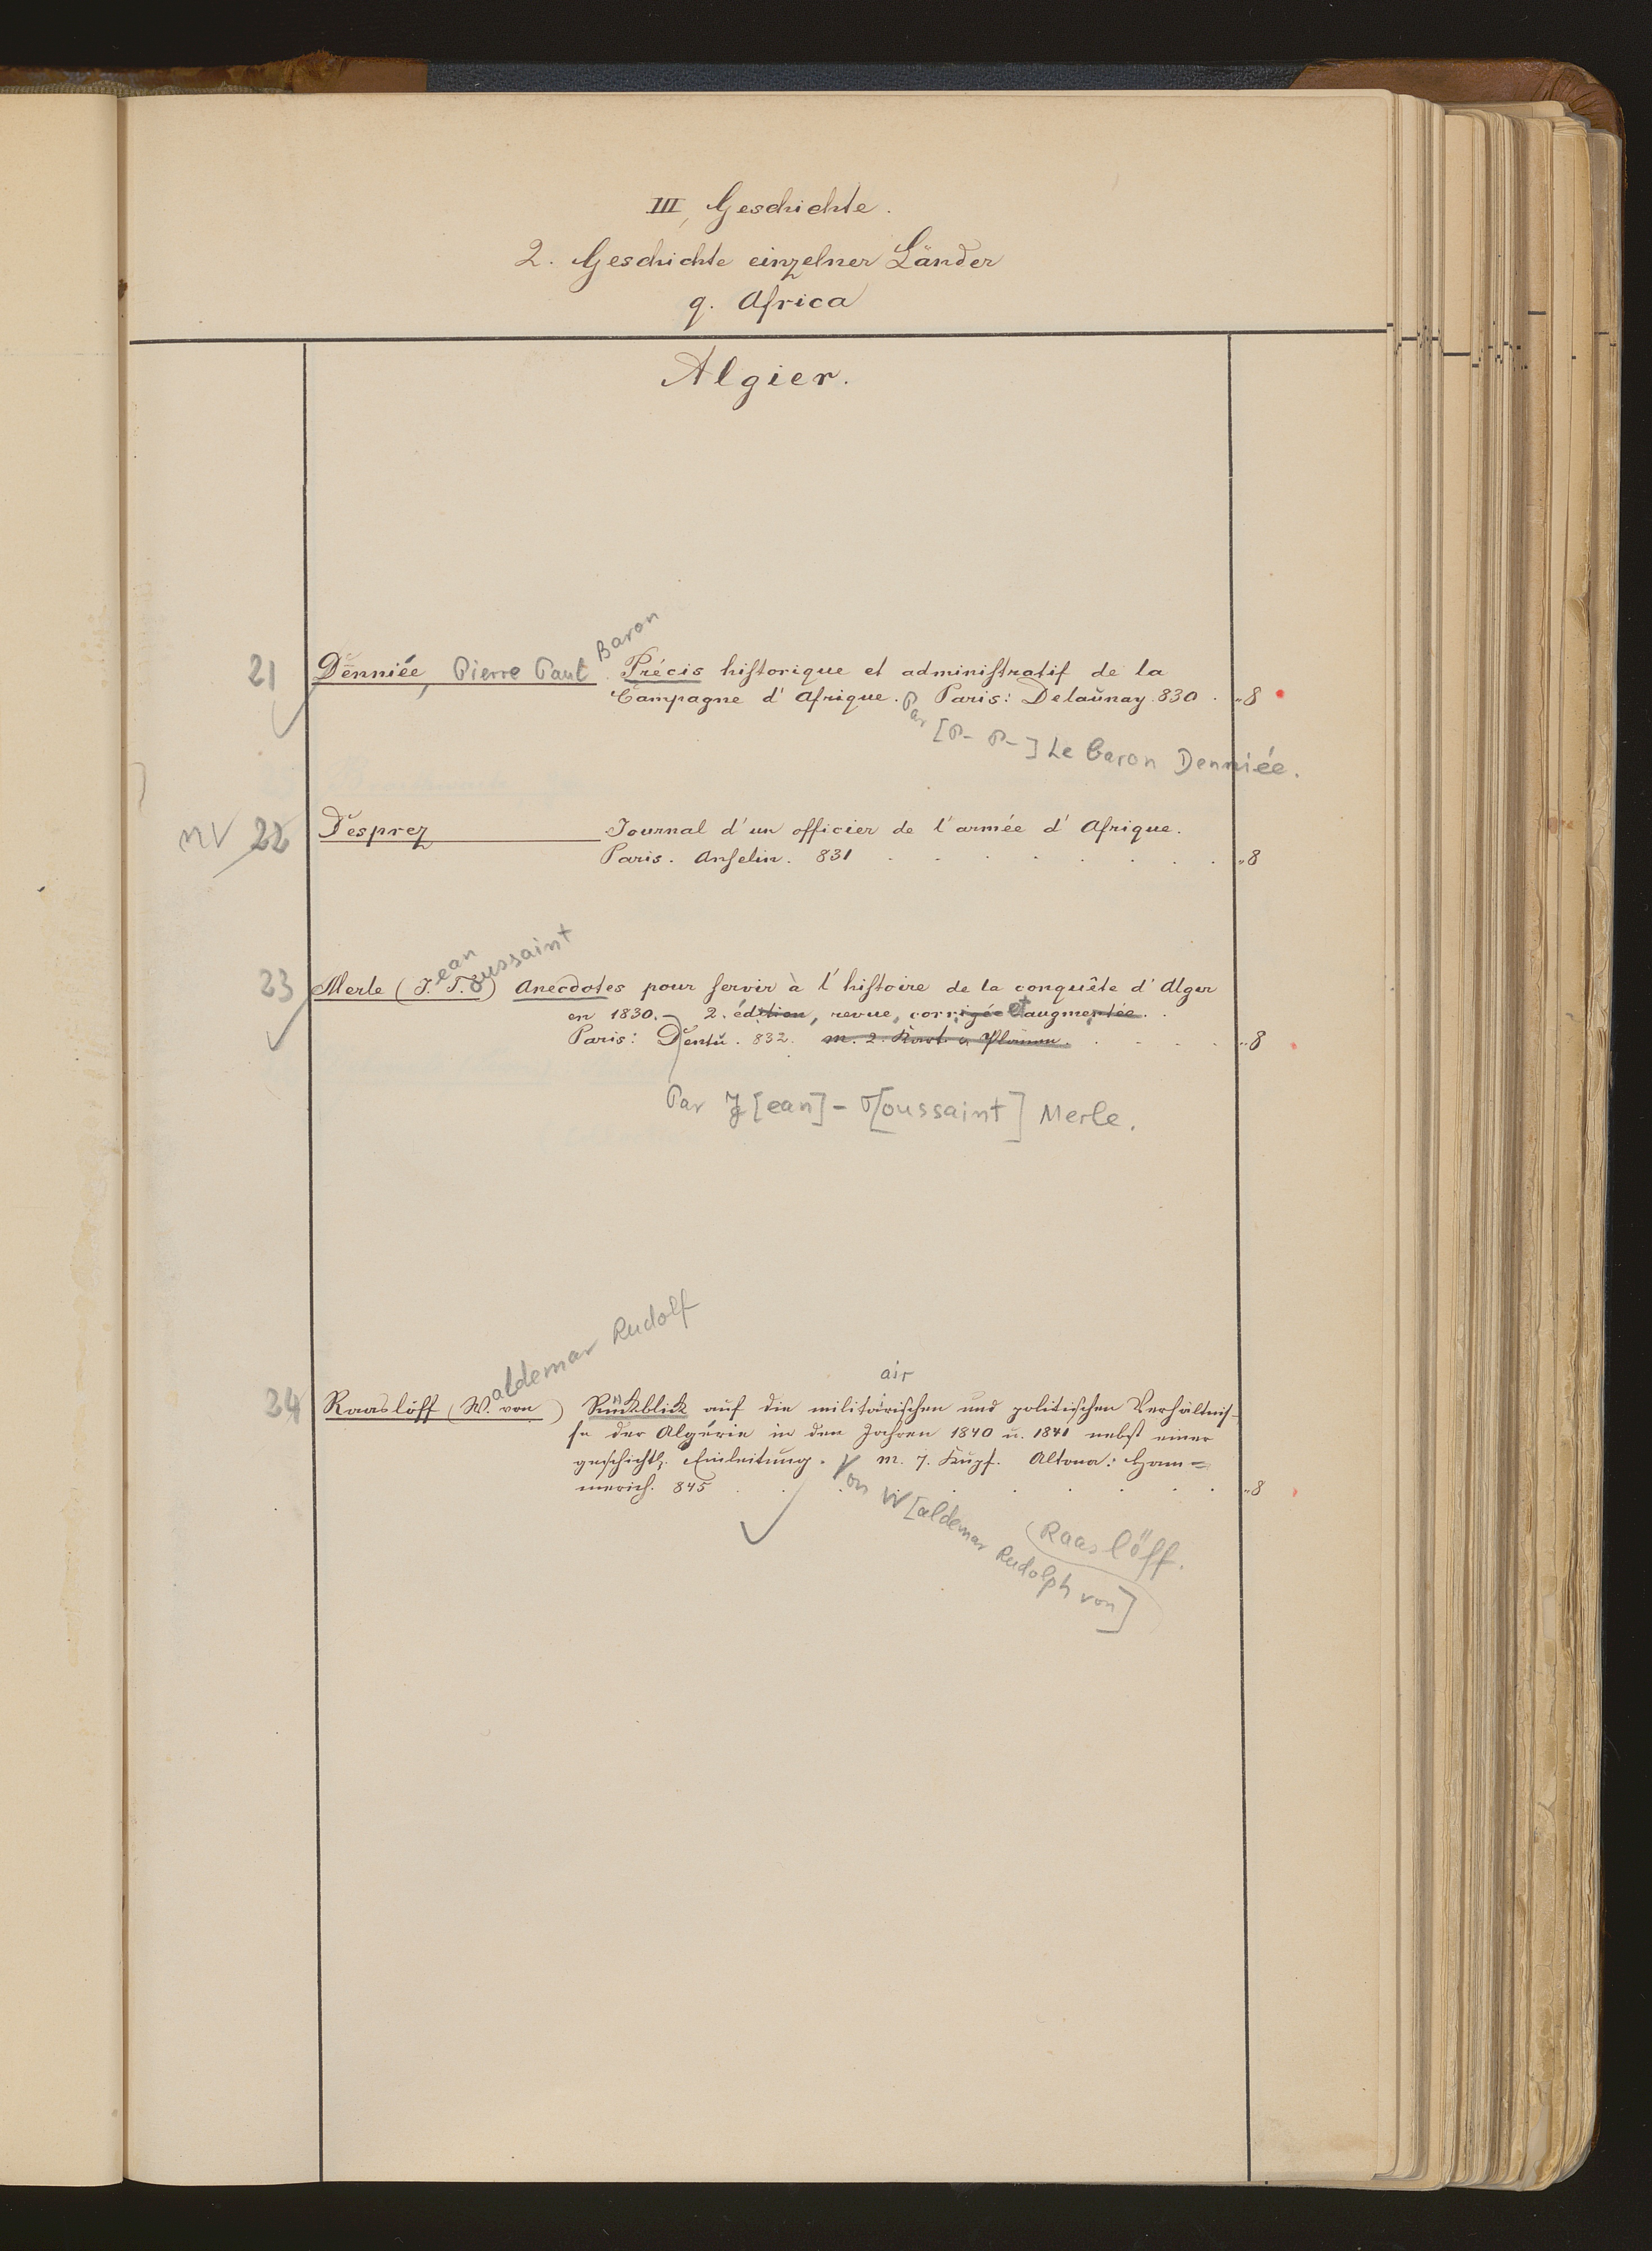 III, Geschichte.
2. Geschichte einzelner Länder
q. Africa
Algier.
Baron
21 Denniée, Pierre Paul . Précis historique et administratif de la
Campagne d'Afrique. Paris: Delaunay. 830 . „8
Par [P- P-] Le baron Denniée.
NV 22 Desprez Journal d'un officier de l'armée d'Afrique.
Paris. Anselin. 831 . . . . . . . . „8
ean oussaint
23 Merle (J. T.) Anecdotes pour servir à l'histoire de la conquête d'Alger
en 1830. – 2. édition, revue, corrigée et augmentée. .
Paris: Dentu. 832. m. 2. Kart. u. Planen. . . . „8
Par J[ean] - T[oussaint] Merle.
aldemar Rudolf
air
24 Raaslöff (W. von) Rückblick auf die militärischen und politischen Verhältnis-
se der Algérie in den Jahren 1840 u. 1841 nebst einer
geschichtl. Einleitung. m. 7. Kupf. Altona: Ham=
merich. 845 . . . . . . . . „8
Von W[aldemar Rudolph von] Raaslöff.